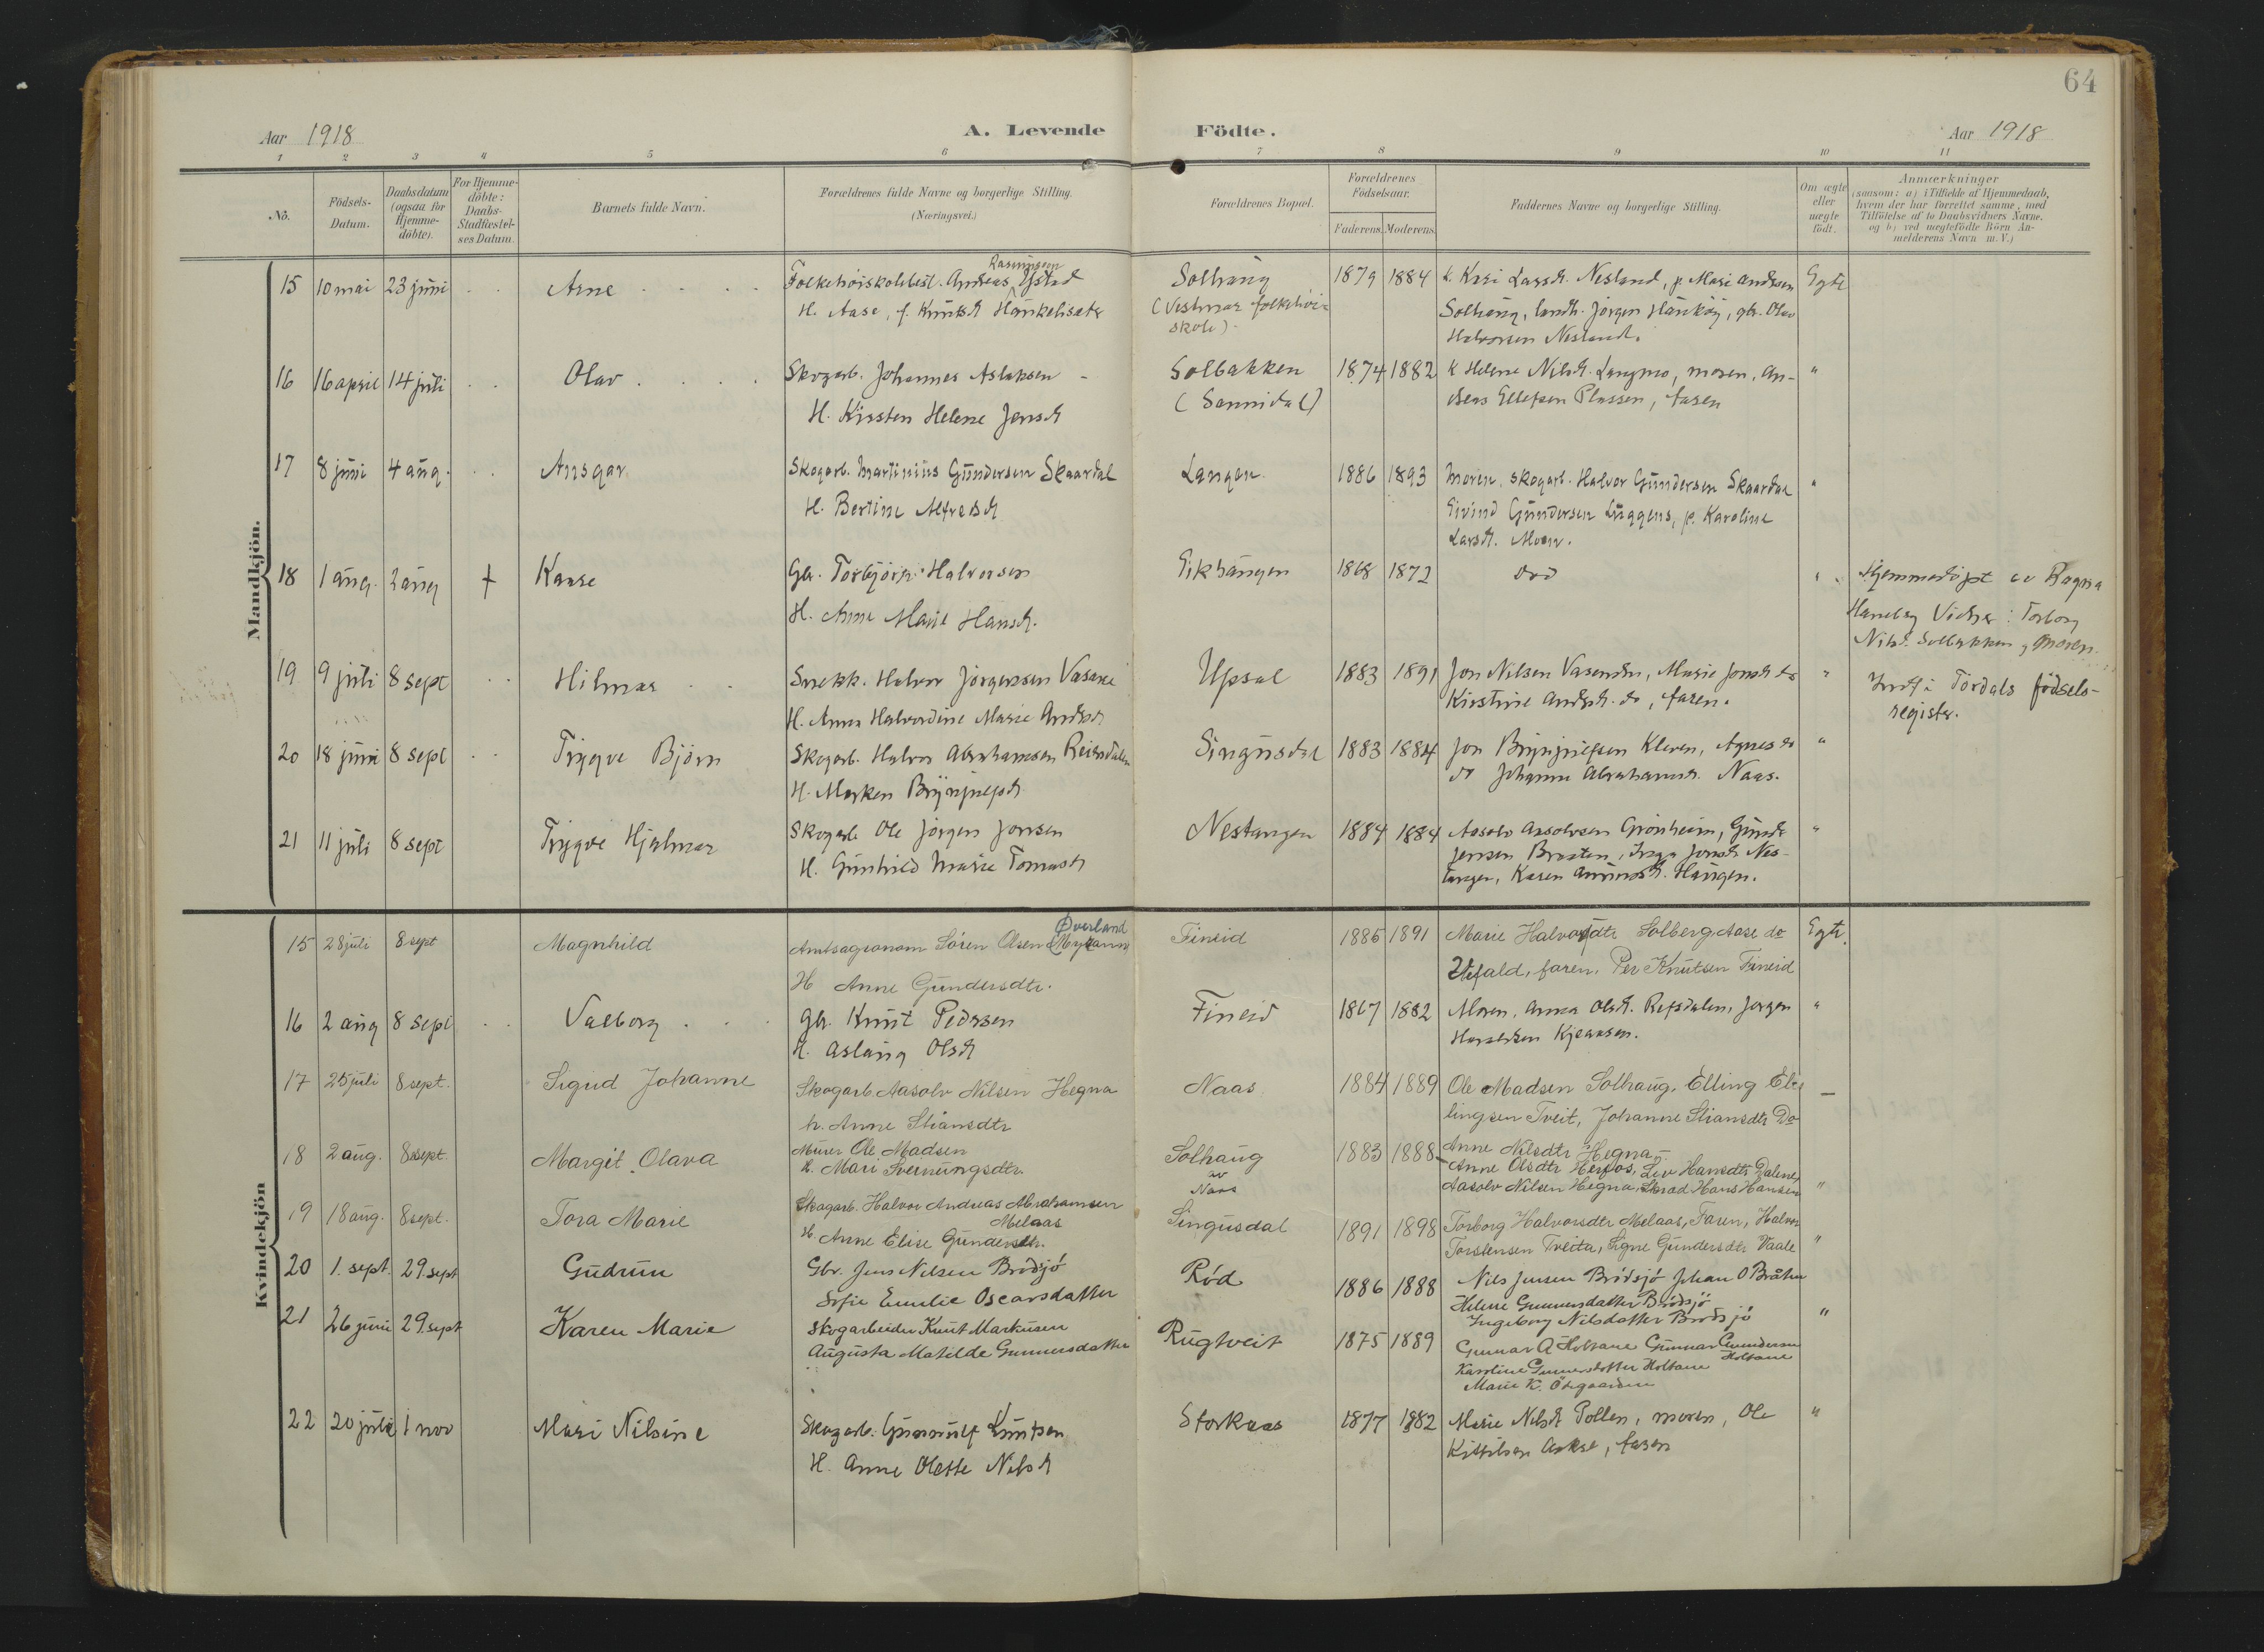 64
Aar 1918
A. Levende Födte.
Aar 1918
1 2 3 4 5 6 7 8 9 10 11
No.
Födsels-Datum.
Daabsdatum (ogsaa for Hjemme-döbte).
For Hjemme-döbte: Daabs-Stadfæstel-ses Datum.
Barnets fulde Navn.
Forældrenes fulde Navne og borgerlige Stilling. (Næringsvei.)
Forældrenes Bopæl.
Forældrenes Födselsaar.
Faderens. Moderens.
Faddernes Navne og borgerlige Stilling.
Om ægte eller uægte födt.
Anmærkninger
(saasom: a) i Tilfælde af Hjemmedaab,
hvem der har forrettet samme, med
Tilföielse af to Daabsvidners Navne,
og b) ved uægtefödte Börn An-
melderens Navn m. V.)
Mandkjön.
15 10 mai 23 juni Arne Folkehöiskolebest. Andreas Rasmussen Ystad Solhaug 1879 1884 k. Kari Larsdt. Nesland, p. Mari Andersen Egte
H. Aase, f. Knutsdt Haukelisæter (Vestmar folkehöi- Solhaug, landh. Jörgen Haukög, gbr. Olav
skole). Halvorsen Nesland.
16 16 april 14 juli Olav Skogarb. Johannes Aslaksen Solbakken 1874 1882 k Helene Nilsdt. Langmo, moren, An- "
H. Kirsten Helene Jensdt (Sannidal) dreas Ellefsen Plassen, faren
17 8 juni 4 aug. Ansgar Skogarb. Martinius Gundersen Skaardal Langen 1886 1893 Moren, skogarb. Halvor Gundersen Skaardal "
H. Bertine Alfredsdt Eivind Gundersen Luggens, p. Karoline
Larsdt. Moen.
18 1 aug. 2 aug + Kaare Gbr. Torbjörn Halvorsen Eikhaugen 1868 1872 död " Hjemmedöpt av Ragna
H. Anne Marie Hansdt. Haneborg Vidner: Torborg
Nilsdt. Solbakken, moren.
19 9 juli 8 sept Hilmar Snekk. Halvor Jörgensen Vasend Upsal 1883 1891 Jon Nilsen Vasenden, Marie Jonsdt do " Indf i Tördals födsels-
H. Anna Halvordine Marie Andrsdt Kirstine Andrsdt. do, faren. register.
20 18 juni 8 sept Trygve Björn Skogarb. Halvor Abrahamsen Reiersdalen Singusdal 1883 1884 Jon Brynjulfsen Kleven, Agnes do "
H. Marken Brynjulfsdt do Johanne Abrahamsdt. Naas.
21 11 juli 8 sept Trygve Hjalmar Skogarb Ole Jörgen Jonsen Nestangen 1884 1884 Aasolv Aasolvsen Grönheim, "
H. Gunhild Marie Tomasdt Jensen Braaten, Inga Jonsdt Nes-
tangen, Karen Amundsdt. Haugen.
Kvindekjön
15 28 juli 8 sept Magnhild Amtsagronom Sören Olsen Øverland (Myrann) Fineid 1885 1891 Marie Halvorsdtr Solberg, Aase do Egte
H Anne Gundersdtr. Ulefald, faren, Per Knutsen Fineid
16 2 aug 8 sept Valborg Gbr. Knut Pedersen Fineid 1867 1882 Moren, Anna Olsdt. Refsdalen, Jörgen "
H. Aslaug Olsdt Haraldsen Kjeaasen.
17 25 juli 8 sept. Sigrid Johanne Skogarb. Aasolv Nilsen Hegna Naas 1884 1889 Ole Madsen Solhaug, Elling El-
h. Anne Stiansdtr lingsen Tveit, Johanne Stiansdtr Do
18 2 aug. 8 sept. Margit Olava Murer Ole Madsen Solhaug 1883 1888 Anne Nilsdtr Hegna
h. Mari Sveinungsdtr. av Naas Anne Olsdtr , Live Hansdtr Dalene,
Aasolv Nilsen Hegna, Skræd Hans Hansen "
19 18 aug. 8 sept. Tora Marie Skogarb. Halvor Andreas Abrahamsen Melaas Singusdal 1891 1898 Torborg Halvorsdtr Melaas, Faren, Halvor
H. Anne Elise Gundersdtr. Torstensen Tveita, Signe Gundersdtr Vaale "
20 1. sept. 29. sept Gudrun Gbr. Jens Nilsen Brödsjö Röd 1886 1888 Nils Jensen Brödsjö Johan O Bråten
Sofie Emilie Oscarsdatter Helene Gunnersdatter Brödsjö
Ingeborg Nilsdatter Brödsjö "
21 26 juni 29. sept Karen Marie Skogarbeider Knut Markusen Rugtveit 1875 1889 Gunnar A Holtane Gunnar Gundersen
Augusta Matilde Gunnersdatter Karoline Gunnersdatter Holtane Holtane
Marie K. Östgaarden
22 20 juli 1 nov Mari Nilsine Skogarb. Gunnulf Knutsen Storkaas 1877 1882 Marie Nilsdt Pollen, moren, Ole "
H. Anne Olette Nilsdt Kittilsen Aakre, faren